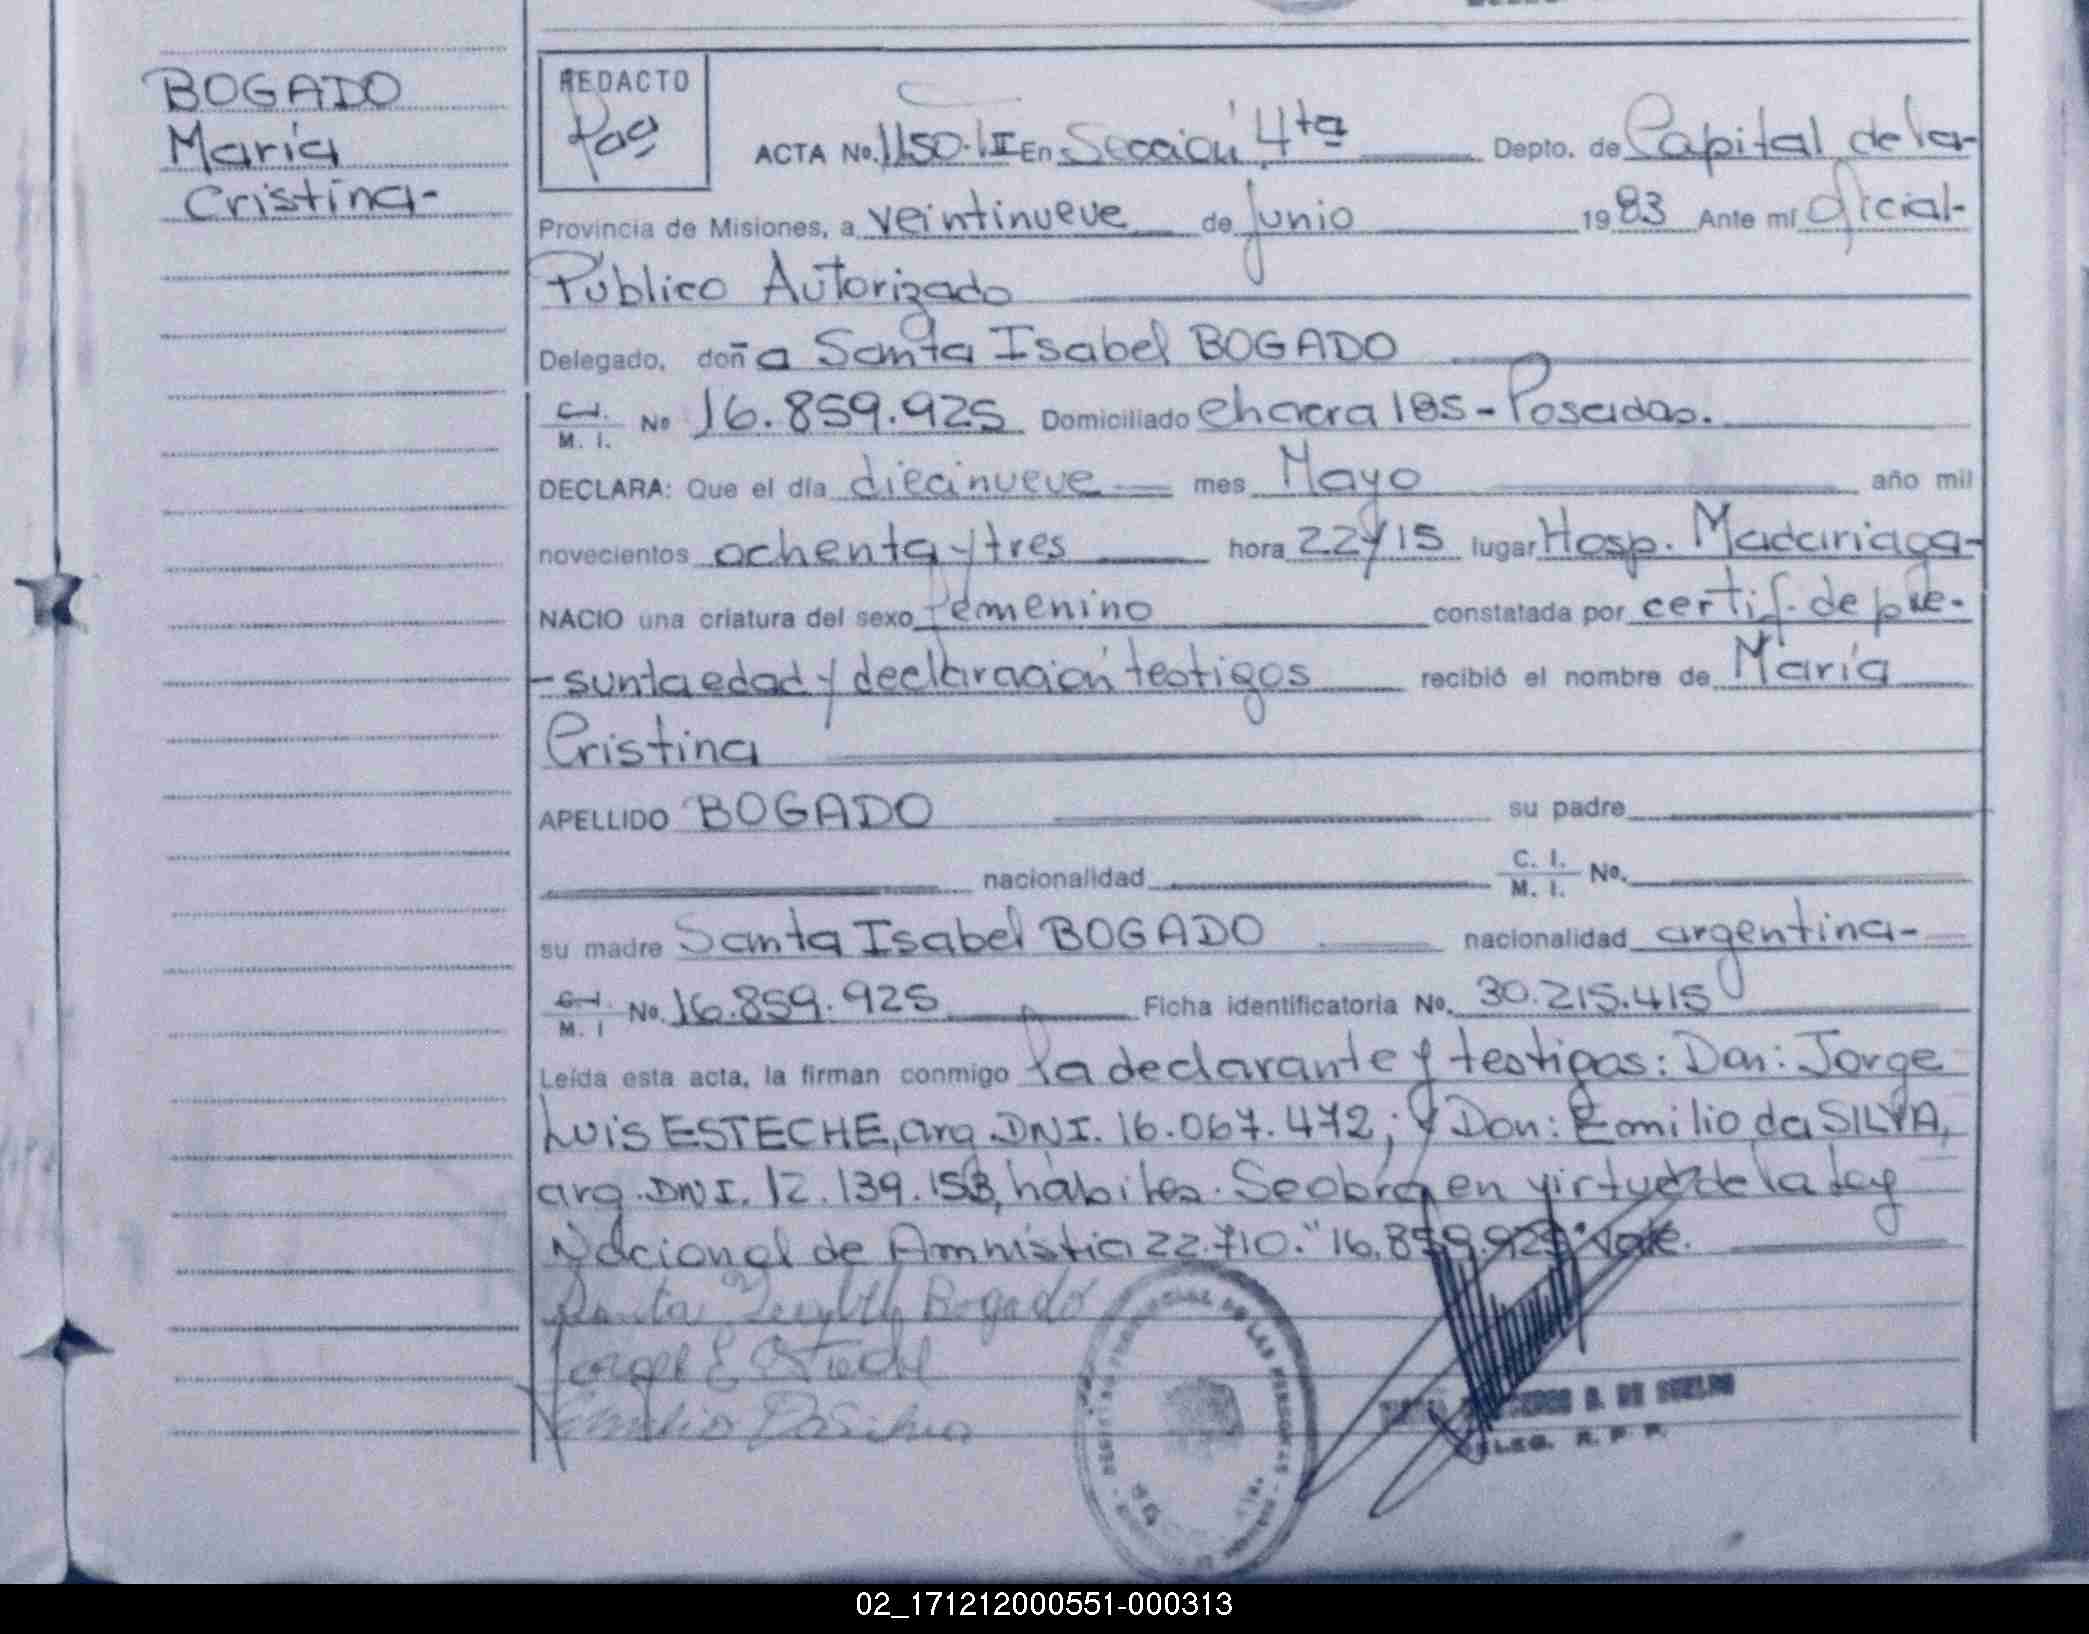 BOGADO
María
Cristina-
REDACTO
ACTA No. 1150-III En Sección 4ta Depto. de Capital de la-
Provincia de Misiones, a veintinueve de Junio 1983 Ante mí Oficial-
Público Autorizado
Delegado, doña Santa Isabel BOGADO
C.I. / M. I. No 16.859.925 Domiciliado Chacra 185 - Posadas.
DECLARA: Que el día diecinueve mes Mayo año mil
novecientos ochenta y tres hora 22 y 15 lugar Hosp. Madariaga-
NACIO una criatura del sexo Femenino constatada por certif. de pre-
-sunta edad y declaración testigos recibió el nombre de María
Cristina
APELLIDO BOGADO su padre
nacionalidad C. I. / M. I. No.
su madre Santa Isabel BOGADO nacionalidad argentina-
C.I. / M. I No. 16.859.925 Ficha identificatoria No. 30.215.415
Leída esta acta, la firman conmigo la declarante y testigos: Don: Jorge
Luis ESTECHE, arg. DNI. 16.067.472; y Don: Emilio da SILVA,
arg. DNI. 12.139.153, hábiles. Se obra en virtud de la Ley
Nacional de Amnistia 22.710. "16.859.925" Vale.
Bogado
Emilio DaSilva
DE LAS PERSONAS
DELEG. R. P. P.
02_171212000551-000313